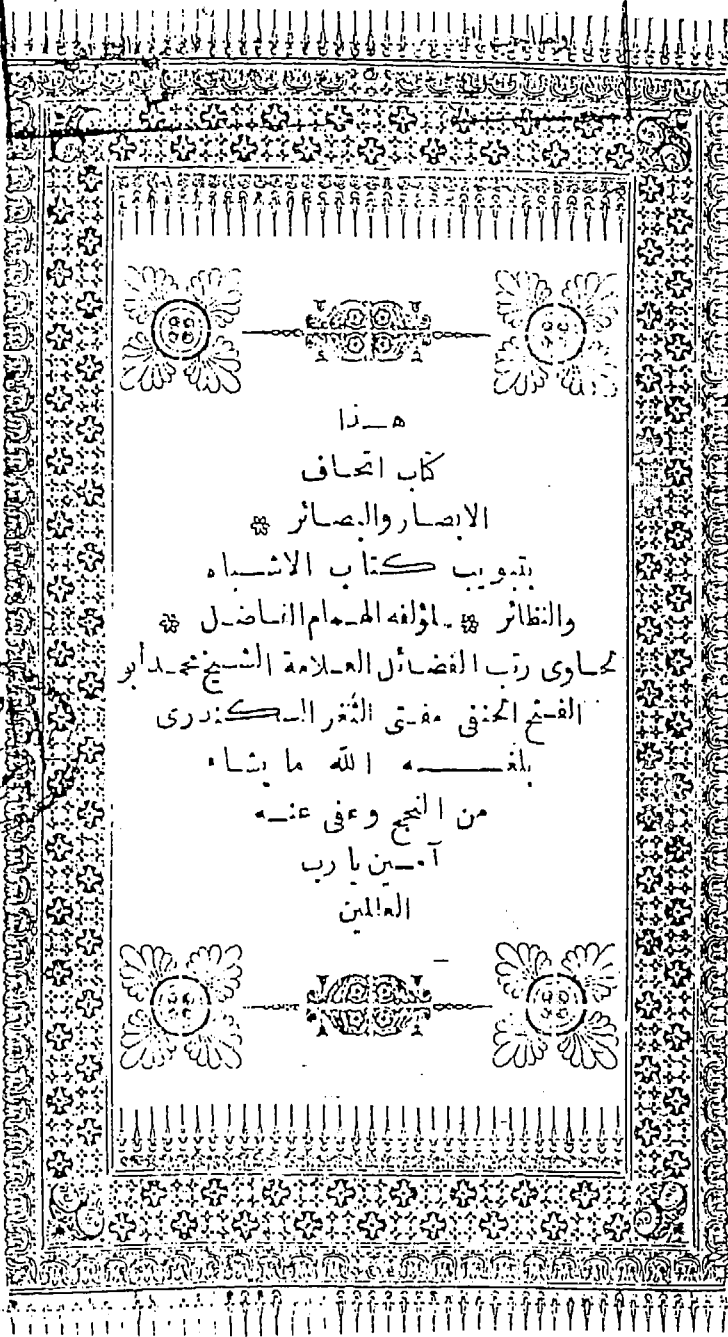 هـذا
كتاب اتحاف
الابصار والبصائر
بتبويب كتاب الاشباه
والنظائر لمؤلفه الهمام الفاضل
حاوى رتب الفضائل العلامة الشيخ محمد أبو
الفتح الحنفى مفتى الثغر السكندرى
بلغه الله ما يشاء
من النجح وعفى عنه
آمين يا رب
العالمين